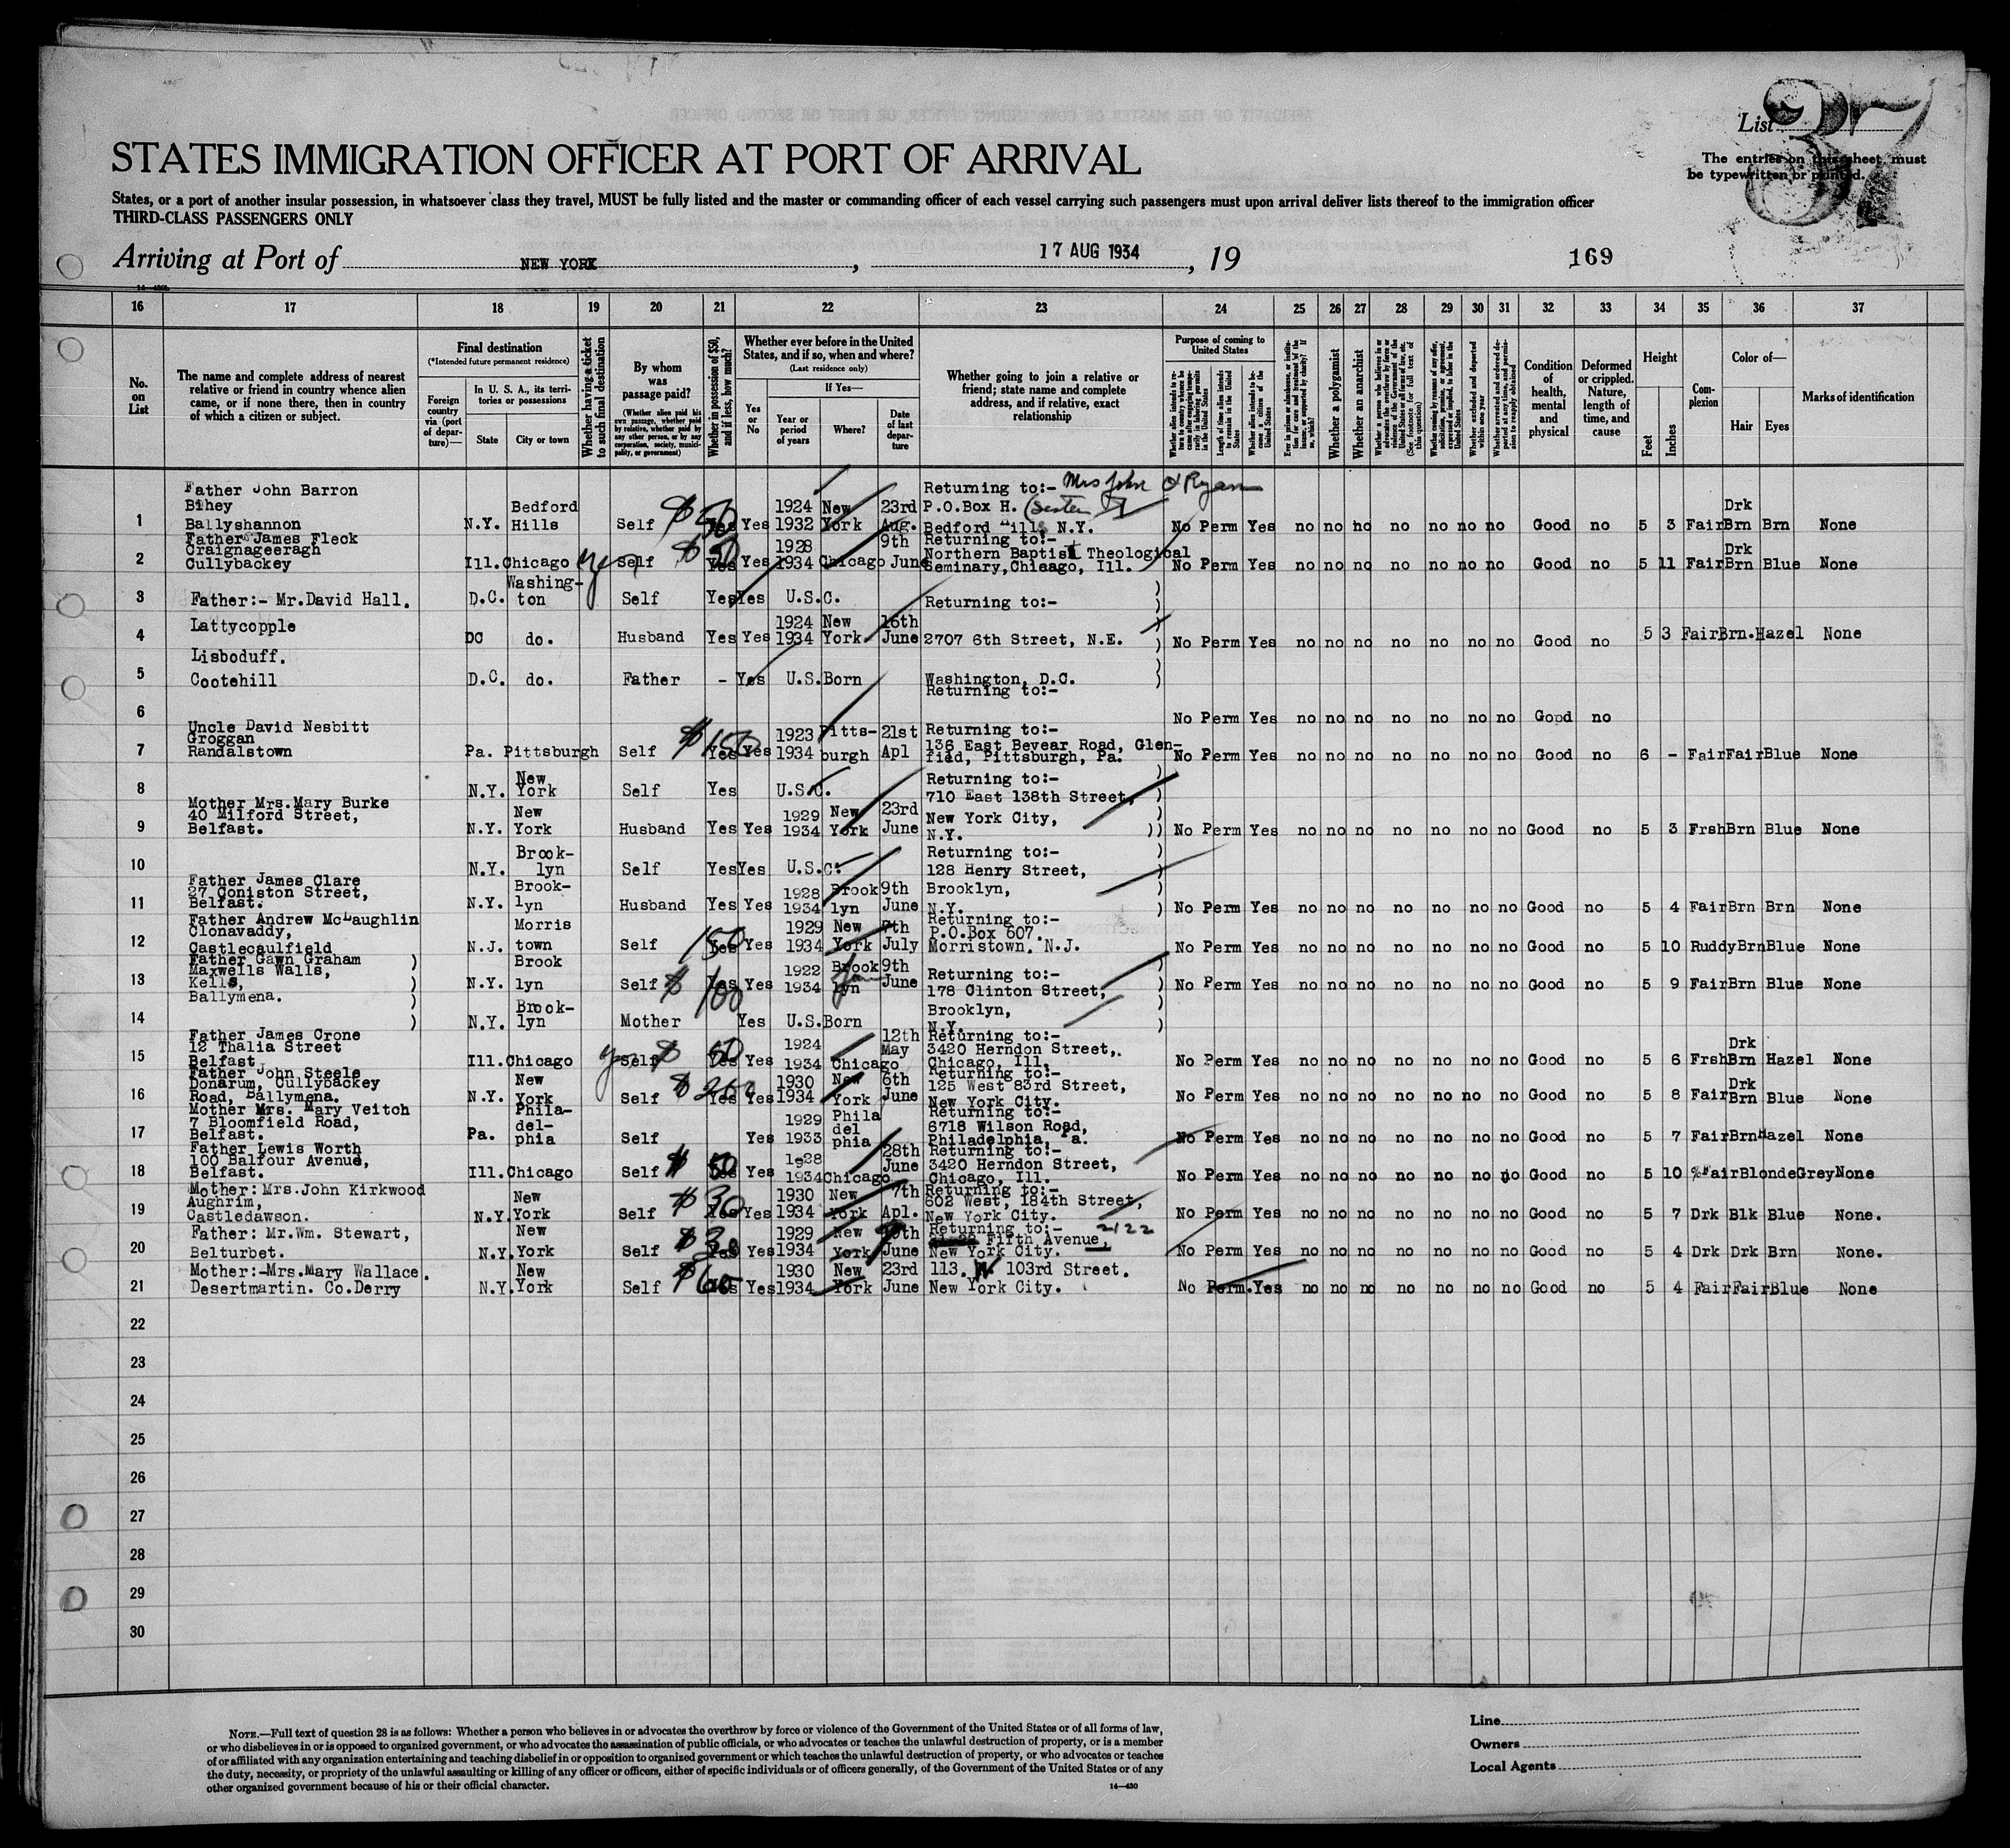 List 37
STATES IMMIGRATION OFFICER AT PORT OF ARRIVAL
The entries on this sheet must
be typewritten or printed.
States, or a port of another insular possession, in whatsoever class they travel, MUST be fully listed and the master or commanding officer of each vessel carrying such passengers must upon arrival deliver lists thereof to the immigration officer
THIRD-CLASS PASSENGERS ONLY
Arriving at Port of NEW YORK, 17 AUG 1934, 19 169
16 17 18 19 20 21 22 23 24 25 26 27 28 29 30 31 32 33 34 35 36 37
No. on List
The name and complete address of nearest relative or friend in country whence alien came, or if none there, then in country of which a citizen or subject.
Final destination
(*Intended future permanent residence)
Foreign country via (port of departure)—
In U. S. A., its territories or possessions
State City or town
Whether having a ticket to such final destination
By whom was passage paid?
(Whether alien paid his own passage, whether paid by relative, whether paid by any other person, or by any corporation, society, municipality, or government)
Whether in possession of $50, and if less, how much?
Whether ever before in the United States, and if so, when and where?
(Last residence only)
Yes or No
If Yes—
Year or period of years Where? Date of last departure
Whether going to join a relative or friend; state name and complete address, and if relative, exact relationship
Purpose of coming to United States
Length of time alien intends to remain in the United States
Whether alien intends to become a citizen of the United States
Whether a polygamist
Whether an anarchist
Condition of health, mental and physical
Deformed or crippled. Nature, length of time, and cause
Height
Feet Inches
Complexion
Color of—
Hair Eyes
Marks of identification
1 Father John Barron Bihey Ballyshannon N.Y. Bedford Hills Self $50 Yes Yes 1924 1932 New York 23rd Aug. Returning to:- Mrs John O'Ryan P.O.Box H. (Sister) Bedford Hills N.Y. No Perm Yes no no no no no no no Good no 5 3 Fair Drk Brn Brn None
2 Father James Fleck Craignageeragh Cullybackey Ill. Chicago yes Self $50 Yes Yes 1928 1934 Chicago 9th June Returning to:- Northern Baptist Theological Seminary, Chicago, Ill. No Perm Yes no no no no no no no Good no 5 11 Fair Drk Brn Blue None
3 Father:- Mr.David Hall. D.C. Washing-ton Self Yes Yes U.S.C. Returning to:- )
4 Lattycopple DC do. Husband Yes Yes 1924 1934 New York 16th June 2707 6th Street, N.E. ) No Perm Yes no no no no no no no Good no 5 3 Fair Brn. Hazel None
Lisboduff.
5 Cootehill D.C. do. Father - Yes U.S.Born Washington, D.C. )
6 Returning to:- No Perm Yes no no no no no no no Good no
7 Uncle David Nesbitt Groggan Randalstown Pa. Pittsburgh Self $150 Yes Yes 1923 1934 Pitts-burgh 21st Apl Returning to:- 136 East Bevear Road, Glen-field, Pittsburgh, Pa. No Perm Yes no no no no no no no Good no 6 - Fair Fair Blue None
8 N.Y. New York Self Yes U.S.C. Returning to:- 710 East 138th Street, )
9 Mother Mrs.Mary Burke 40 Milford Street, Belfast. N.Y. New York Husband Yes Yes 1929 1934 New York 23rd June New York City, N.Y. )) No Perm Yes no no no no no no no Good no 5 3 Frsh Brn Blue None
10 N.Y. Brook-lyn Self Yes Yes U.S.C. Returning to:- 128 Henry Street, )
11 Father James Clare 27 Coniston Street, Belfast. N.Y. Brook-lyn Husband Yes Yes 1928 1934 Brook lyn 9th June Brooklyn, N.Y. ) No Perm Yes no no no no no no no Good no 5 4 Fair Brn Brn None
12 Father Andrew McLaughlin Clonavaddy, Castlecaulfield N.J. Morris town Self 150 Yes Yes 1929 1934 New York 7th July Returning to:- P.O.Box 607 Morristown, N.J. No Perm Yes no no no no no no no Good no 5 10 Ruddy Brn Blue None
13 Father Gawn Graham Maxwells Walls, Kells, Ballymena. ) N.Y. Brook lyn Self $100 Yes Yes 1922 1934 Brook lyn 9th June Returning to:- 178 Clinton Street, ) No Perm Yes no no no no no no no Good no 5 9 Fair Brn Blue None
14 ) N.Y. Brook-lyn Mother Yes U.S.Born Brooklyn, N.Y. )
15 Father James Crone 12 Thalia Street Belfast Ill. Chicago yes Self $50 Yes Yes 1924 1934 Chicago 12th May Returning to:- 3420 Herndon Street, Chicago, Ill. No Perm Yes no no no no no no no Good no 5 6 Frsh Drk Brn Hazel None
16 Father John Steele Donarum, Cullybackey Road, Ballymena. N.Y. New York Self $200 Yes Yes 1930 1934 New York 6th June Returning to:- 125 West 83rd Street, New York City. No Perm Yes no no no no no no no Good no 5 8 Fair Drk Brn Blue None
17 Mother Mrs. Mary Veitch 7 Bloomfield Road, Belfast. Pa. Phila-del-phia Self Yes 1929 1933 Phila del phia Returning to:- 6718 Wilson Road, Philadelphia, Pa. No Perm Yes no no no no no no no Good no 5 7 Fair Brn Hazel None
18 Father Lewis Worth 100 Balfour Avenue, Belfast. Ill. Chicago Self $50 Yes Yes 1928 1934 Chicago 28th June Returning to:- 3420 Herndon Street, Chicago, Ill. No Perm Yes no no no no no no no Good no 5 10 ½ Fair Blonde Grey None
19 Mother: Mrs.John Kirkwood Aughrim, Castledawson. N.Y. New York Self $30 Yes Yes 1930 1934 New York 7th Apl. Returning to:- 602 West, 184th Street, New York City. No Perm Yes no no no no no no no Good no 5 7 Drk Blk Blue None.
20 Father: Mr.Wm. Stewart, Belturbet. N.Y. New York Self $30 Yes Yes 1929 1934 New York June Returning to:- 2122 Fifth Avenue, New York City. No Perm Yes no no no no no no no Good no 5 4 Drk Drk Brn None.
21 Mother:-Mrs.Mary Wallace. Desertmartin. Co.Derry N.Y. New York Self $60 Yes Yes 1930 1934 New York 23rd June 113. W. 103rd Street. New York City. No Perm. Yes no no no no no no no Good no 5 4 Fair Fair Blue None
22
23
24
25
26
27
28
29
30
NOTE.—Full text of question 28 is as follows: Whether a person who believes in or advocates the overthrow by force or violence of the Government of the United States or of all forms of law,
or who disbelieves in or is opposed to organized government, or who advocates the assassination of public officials, or who advocates or teaches the unlawful destruction of property, or is a member
of or affiliated with any organization entertaining and teaching disbelief in or opposition to organized government or which teaches the unlawful destruction of property, or who advocates or teaches
the duty, necessity, or propriety of the unlawful assaulting or killing of any officer or officers, either of specific individuals or of officers generally, of the Government of the United States or of any
other organized government because of his or their official character.
14—430
Line
Owners
Local Agents